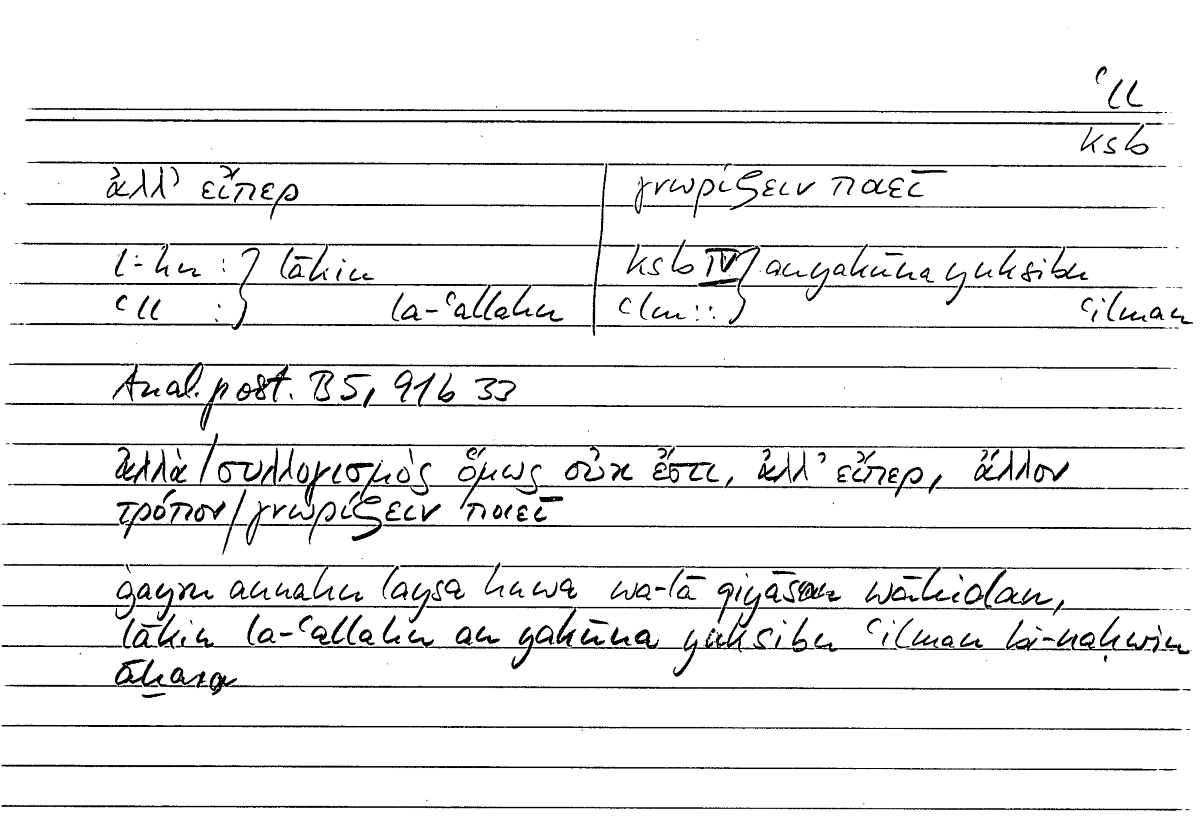 ʿll
ksb
ἀλλ’ εἴπερ γνωρίζειν ποιεῖ
l:kn : } lākin ksb IV } an yakūna yuksibu
ʿll : } la-ʿallahu ʿlm :: } ʿilman
Anal. post. B5, 91b 33
ἀλλὰ / συλλογισμὸς ὅμως οὐκ ἔστι, ἀλλ’ εἴπερ, ἄλλον
τρόπον / γνωρίζειν ποιεῖ
ġayra annahu laysa huwa wa-lā qiyāsan wāḥidan,
lākin la-ʿallahu an yakūna yuksibu ʿilman bi-naḥwin
āḫara